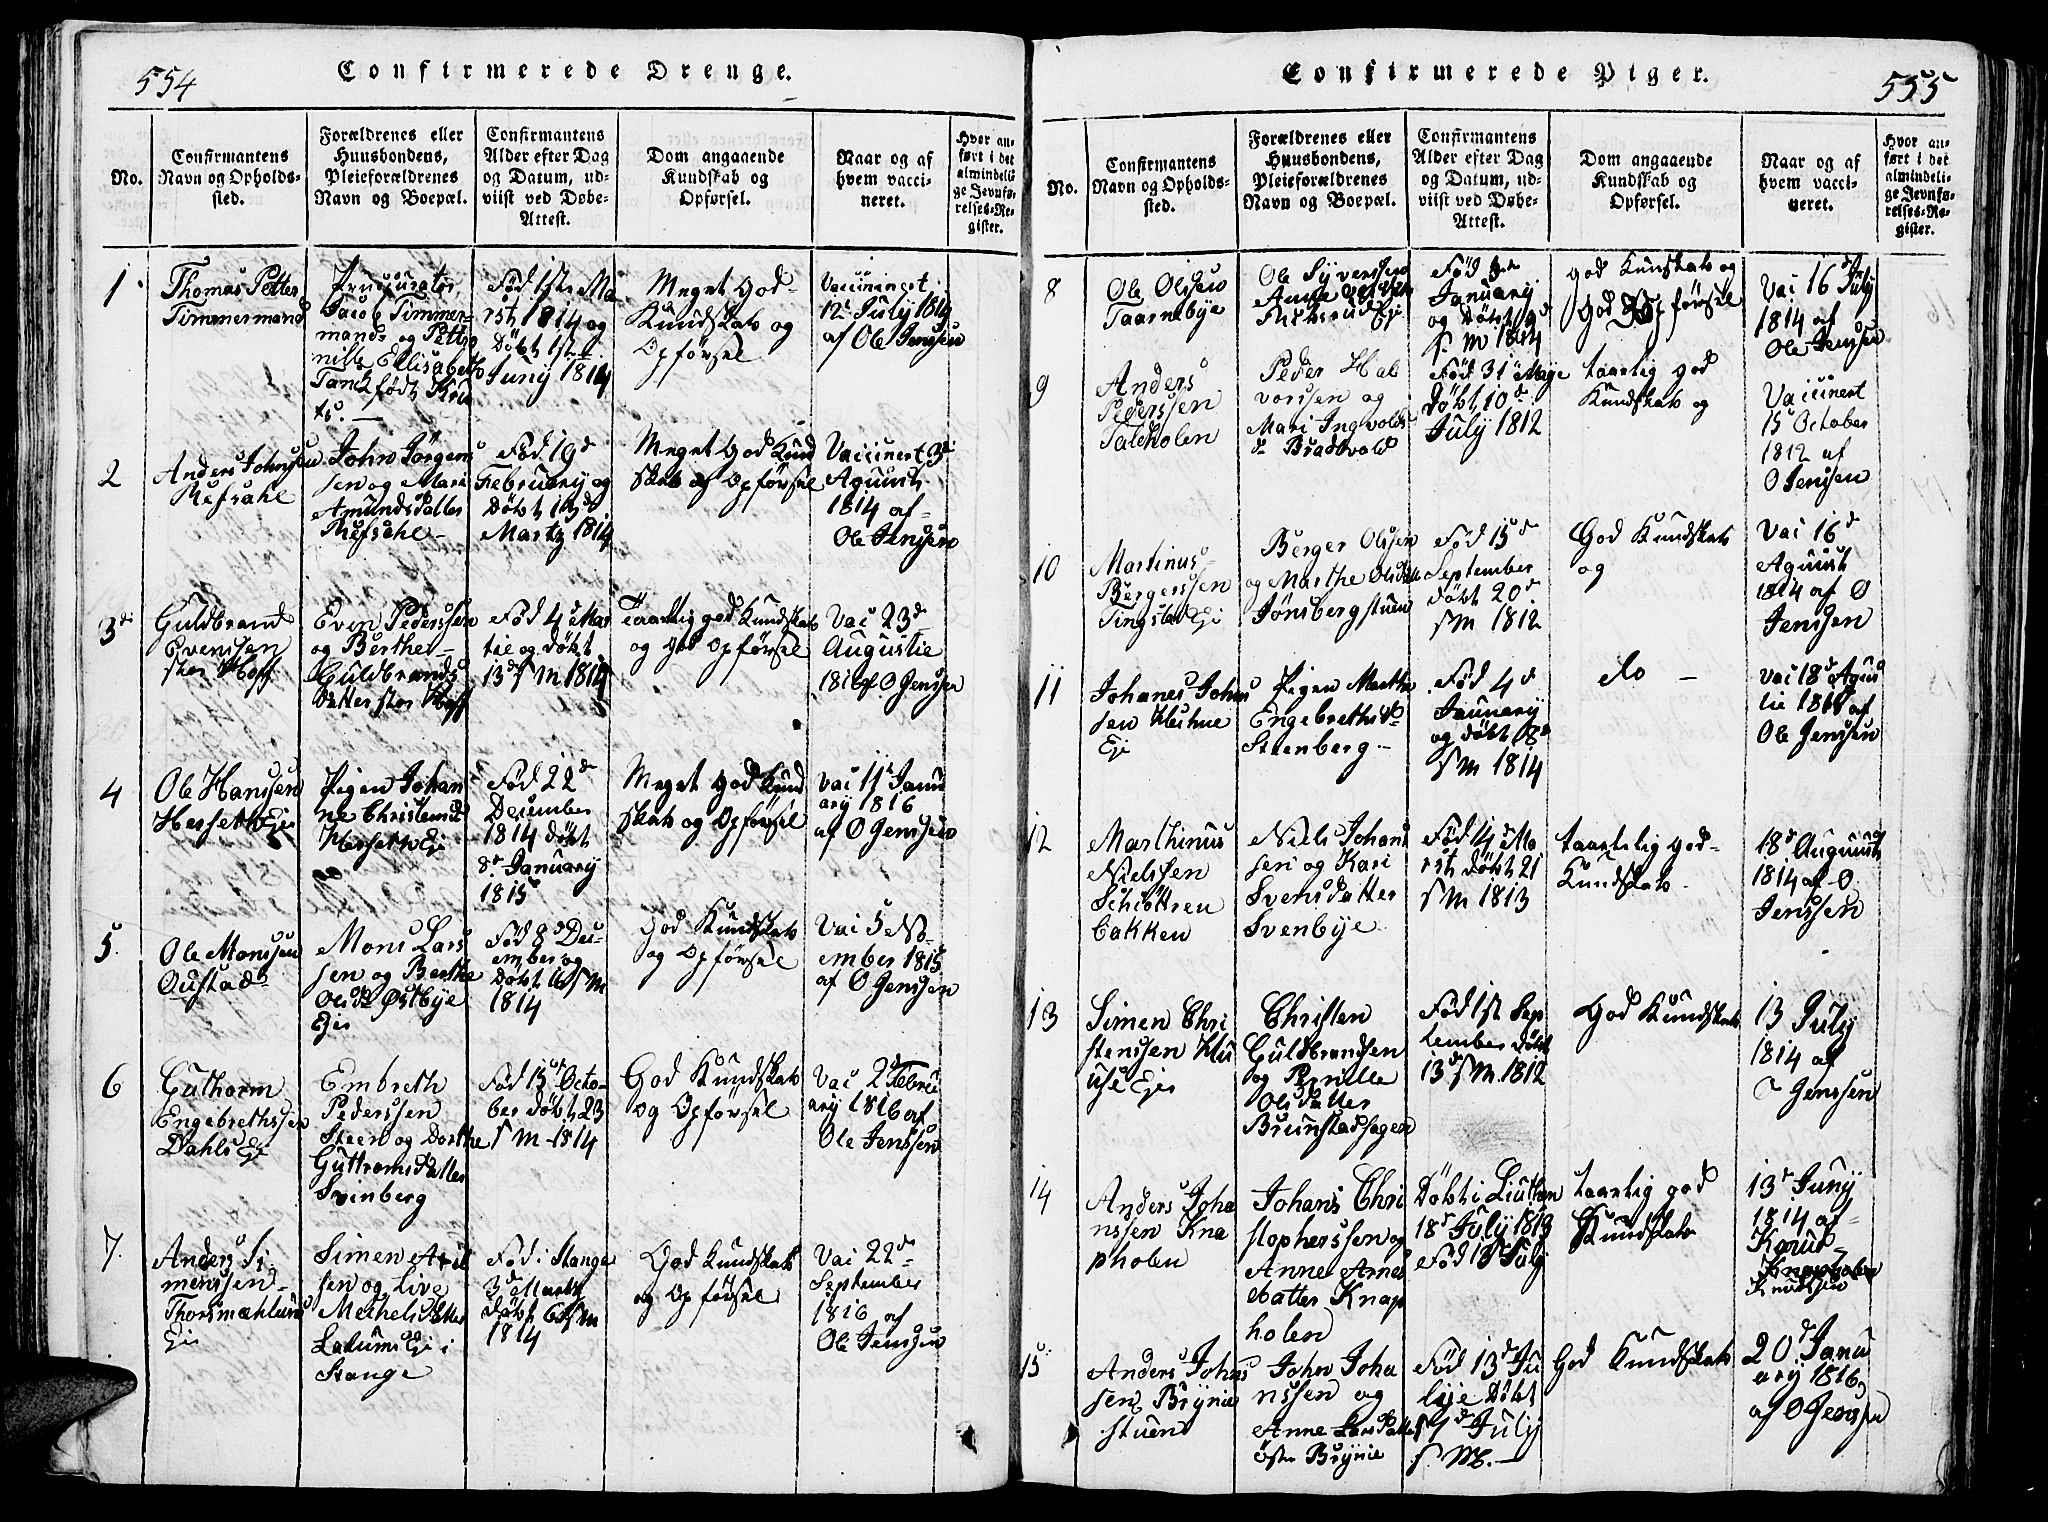 554
Confirmerede Drenge.
No.
Confirmantens
Navn og Opholds-
sted.
Forældrenes eller
Huusbondens,
Pleieforældrenes
Navn og Boepæl.
Confirmantens
Alder efter Dag
og Datum, ud-
viist ved Døbe-
Attest.
Dom angaaende
Kundskab og
Opførsel.
Naar og af
hvem vacci-
neret.
Hvor an-
ført i det
almindeli-
ge Jevnfø-
relses-Re-
gister.
1
Thomas Petter
Timmermand
Jacob Timmer-
mand og Petter
nille Ellisabeth
Tank født
Fød 1ste Ma
rst 1814 og
Døbt 1ste
Juny 1814
Meget God
Kundskab og
Opførsel
Vaccineret
12te July 1814
af Ole Jenssen
2
Anders Johnsen
Refsahl
John Jørgens
sen og Mari
Amundsdatter
Refsahl
Fød 19d
February og
Døbt 13d
Martz 1814
Meget God Kund
skab og Opførsel
Vaccinert 3d
Agunst
1814 af
Ole Jenssen
3
Guldbrand
Evenssen
stor Hoff
Even Pederssen
og Berthe
Guldbrands
datter stor Hoff
Fød 4d Mar
tie og døbt
13d s M 1814
Taarlig god Kundskab
og God Opførsel
Vai 23d
Augustie
1816 af O Jenssen
4
Ole Hanssen
Herseth Eje
Pigen Johan
ne Christensd
Herseth Eje
Fød 22d
December
1814 døbt
8d January
1815
Meget God Kund
skab og Opførsel
Vai 11d Janu
ary 1816
af O Jenssen
5.
Ole Monssen
Oustad
Mons Lars
sen og Berthe
Olsd Østbye
Eje
Fød 8d Dec-
ember og
Døbt 16 s M
1814
God Kundskab
og Opførsel
Vai 5 No-
ember 1815
af O Jenssen
6
Guthorm
Engebrethssen
Dahls Eje
Embreth
Pederssen
Steen og Dorthe
Guttromsdatter
Svinberg
Fød 15d Octo-
ber døbt 23
s M 1814
God Kundskab
og Opførsel
Vai 2d Febru
ary 1816 af
Ole Jenssen
7.
Anders Si
menssen
Thorsmæhlum
Eje
Simen Aril
sen og Live
Michelsdatter
Lalums Eje i
Stange
Fød i Stange
3d Martz
døbt 6d s M
1814
God Kundskab
og Opførsel
Vai 22d
September
1816 af
Ole Jenssen
Confirmerede Piger.
555
No.
Confirmantens
Navn og Opholds-
sted.
Forældrenes eller
Huusbondens,
Pleieforældrenes
Navn og Boepæl.
Confirmantens
Alder efter Dag
og Datum, ud-
viist ved Døbe-
Attest.
Dom angaaende
Kundskab og
Opførsel.
Naar og af
hvem vacci-
neret.
Hvor an-
ført i det
almindeli-
ge Jevnfø-
relses-Re-
gister.
8
Ole Olssen
Taarnebye
Ole Syverssen
Anne
Fød 3de
January
og Døbt 9d
s M 1814
God Kunskab og
God Opførsel
Vai 16d July
1814 af
Ole Jenssen
9
Anders
Pederssen
Taldholen
Peder Hal
vorssen og
Mari Ingvolds
dr Bradvold
Fød 31d Maye
Døbt 10d
July 1812
taarlig god
Kundskab og
Vaccinert
15 October
1812 af
O Jenssen
10
Martinus
Bergerssen
Tingstad Eje
Berger Olssen
og Marthe Olsdatter
Jønsbergstuen
Fød 15d
September
døbt 20d
s M 1812
God Kundskab
og
Vai 16d
Agunst
1814 af O
Jenssen
11
Johanes Johns
sen
Eje
Pigen Marthe
Engebrethsdr
Steenberg
Fød 4d
January
og døbt 8d
s M 1814
do –
Vai 18d Agus
tie 1814 af
Ole Jenssen
12
Marthinus
Nielssen
Schiøttren
bakken
Niels Johans
sen og Kari
Svensdatter
Svenbye
Fød 14d Ma
rst døbt 21
s M 1813
taartelig god
Kundskab
18d Augunst
1814 af O
Jenssen
13
Simen Chri
stenssen Hu
use Eje
Christen
Guldbrandsen
og Pernille
Olsdatter
Brunstadhagen
Fød 1st Sep
tember døbt
13d s M 1812
God Kundskab
13 July
1814 af
O Jenssen
14
Anders Joha
nssen Kna
pholen
Johans Chri
stopherssen og
Anne Arnes
datter Knap
holen
Døbt i Liutten
18d July 1813
Fød 13d July
taarlig god
Kundskab
13d Juny
1814 af
Knud
Knapholen
Knudssen
15
Anders Johns
sen Brynie
stuen
John Joha
nssen og
Anne Larsdatter
øster Brynie
Fød 13d Ju
lije Døbt
17d July
s M.
God Kundskab
20d Janu
ary 1816
af O Jenssen